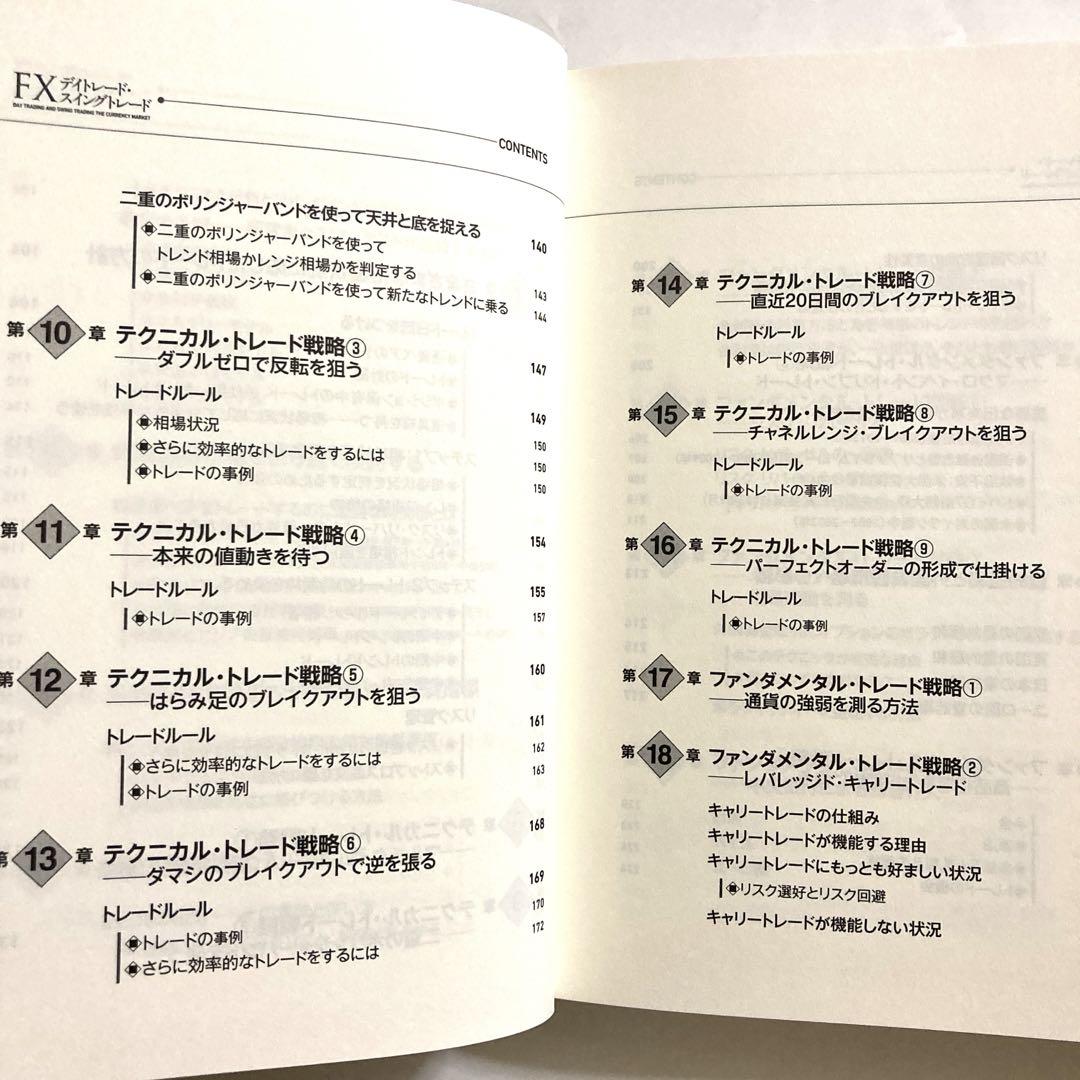 FX デイトレード・
スイングトレード
DAY TRADING AND SWING TRADING THE CURRENCY MARKET
CONTENTS
二重のボリンジャーバンドを使って天井と底を捉える 140
二重のボリンジャーバンドを使って
トレンド相場かレンジ相場かを判定する 143
二重のボリンジャーバンドを使って新たなトレンドに乗る 144
第10章 テクニカル・トレード戦略③
——ダブルゼロで反転を狙う 147
トレードルール 149
相場状況 150
さらに効率的なトレードをするには 150
トレードの事例 150
第11章 テクニカル・トレード戦略④
——本来の値動きを待つ 154
トレードルール 155
トレードの事例 157
第12章 テクニカル・トレード戦略⑤
——はらみ足のブレイクアウトを狙う 160
トレードルール 161
さらに効率的なトレードをするには 162
トレードの事例 163
第13章 テクニカル・トレード戦略⑥
——ダマシのブレイクアウトで逆を張る 168
トレードルール 169
トレードの事例 170
さらに効率的なトレードをするには 172
第14章 テクニカル・トレード戦略⑦
——直近20日間のブレイクアウトを狙う
トレードルール
トレードの事例
第15章 テクニカル・トレード戦略⑧
——チャネルレンジ・ブレイクアウトを狙う
トレードルール
トレードの事例
第16章 テクニカル・トレード戦略⑨
——パーフェクトオーダーの形成で仕掛ける
トレードルール
トレードの事例
第17章 ファンダメンタル・トレード戦略①
——通貨の強弱を測る方法
第18章 ファンダメンタル・トレード戦略②
——レバレッジド・キャリートレード
キャリートレードの仕組み
キャリートレードが機能する理由
キャリートレードにもっとも好ましい状況
リスク選好とリスク回避
キャリートレードが機能しない状況